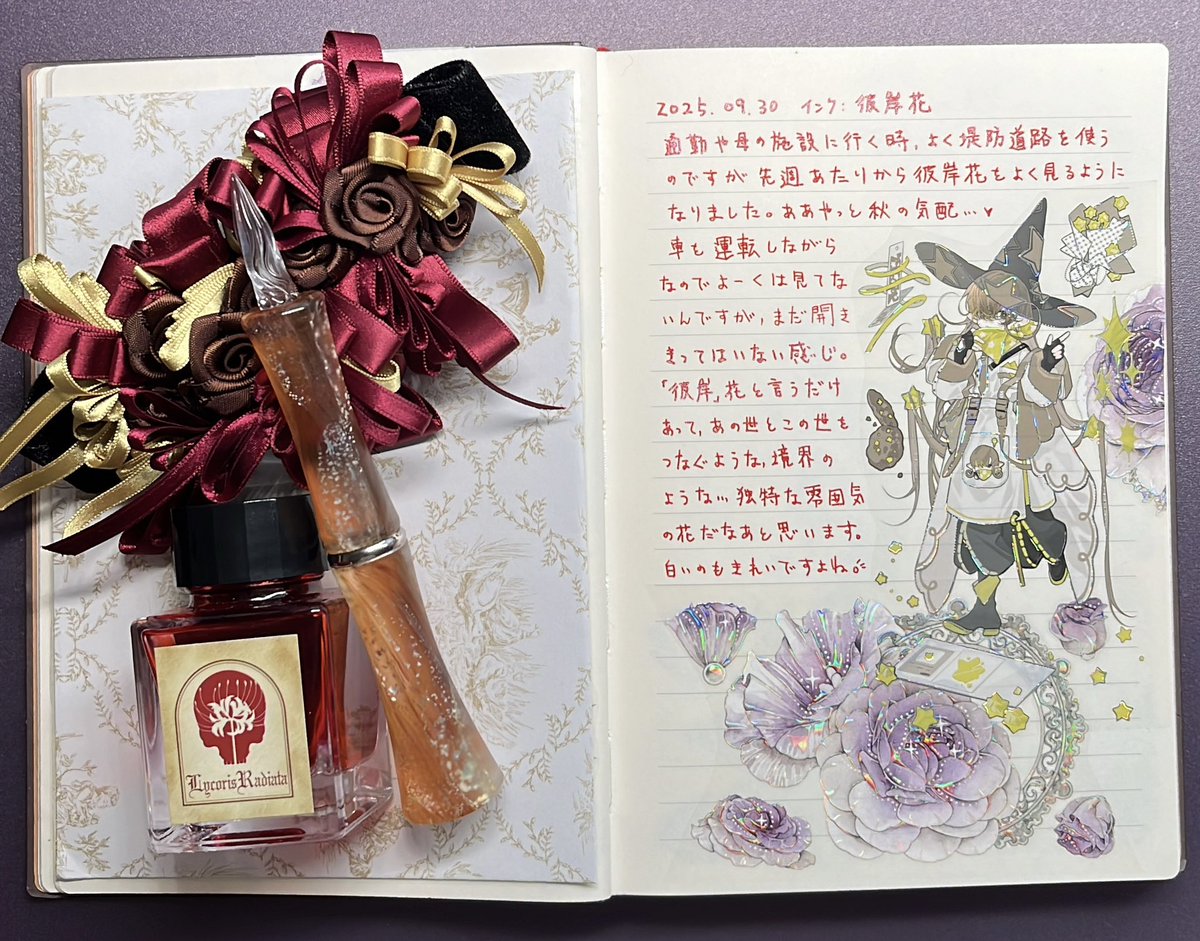 2025.09.30 インク: 彼岸花
通勤や母の施設に行く時、よく堤防道路を使う
のですが先週あたりから彼岸花をよく見るように
なりました。ああやっと秋の気配…♥
車を運転しながら
なのでよーくは見てな
いんですが、まだ開き
きってはいない感じ。
「彼岸」花と言うだけ
あって、あの世とこの世を
つなぐような、境界の
ような…独特な雰囲気
の花だなあと思います。
白いのもきれいですよね。
Lycoris Radiata